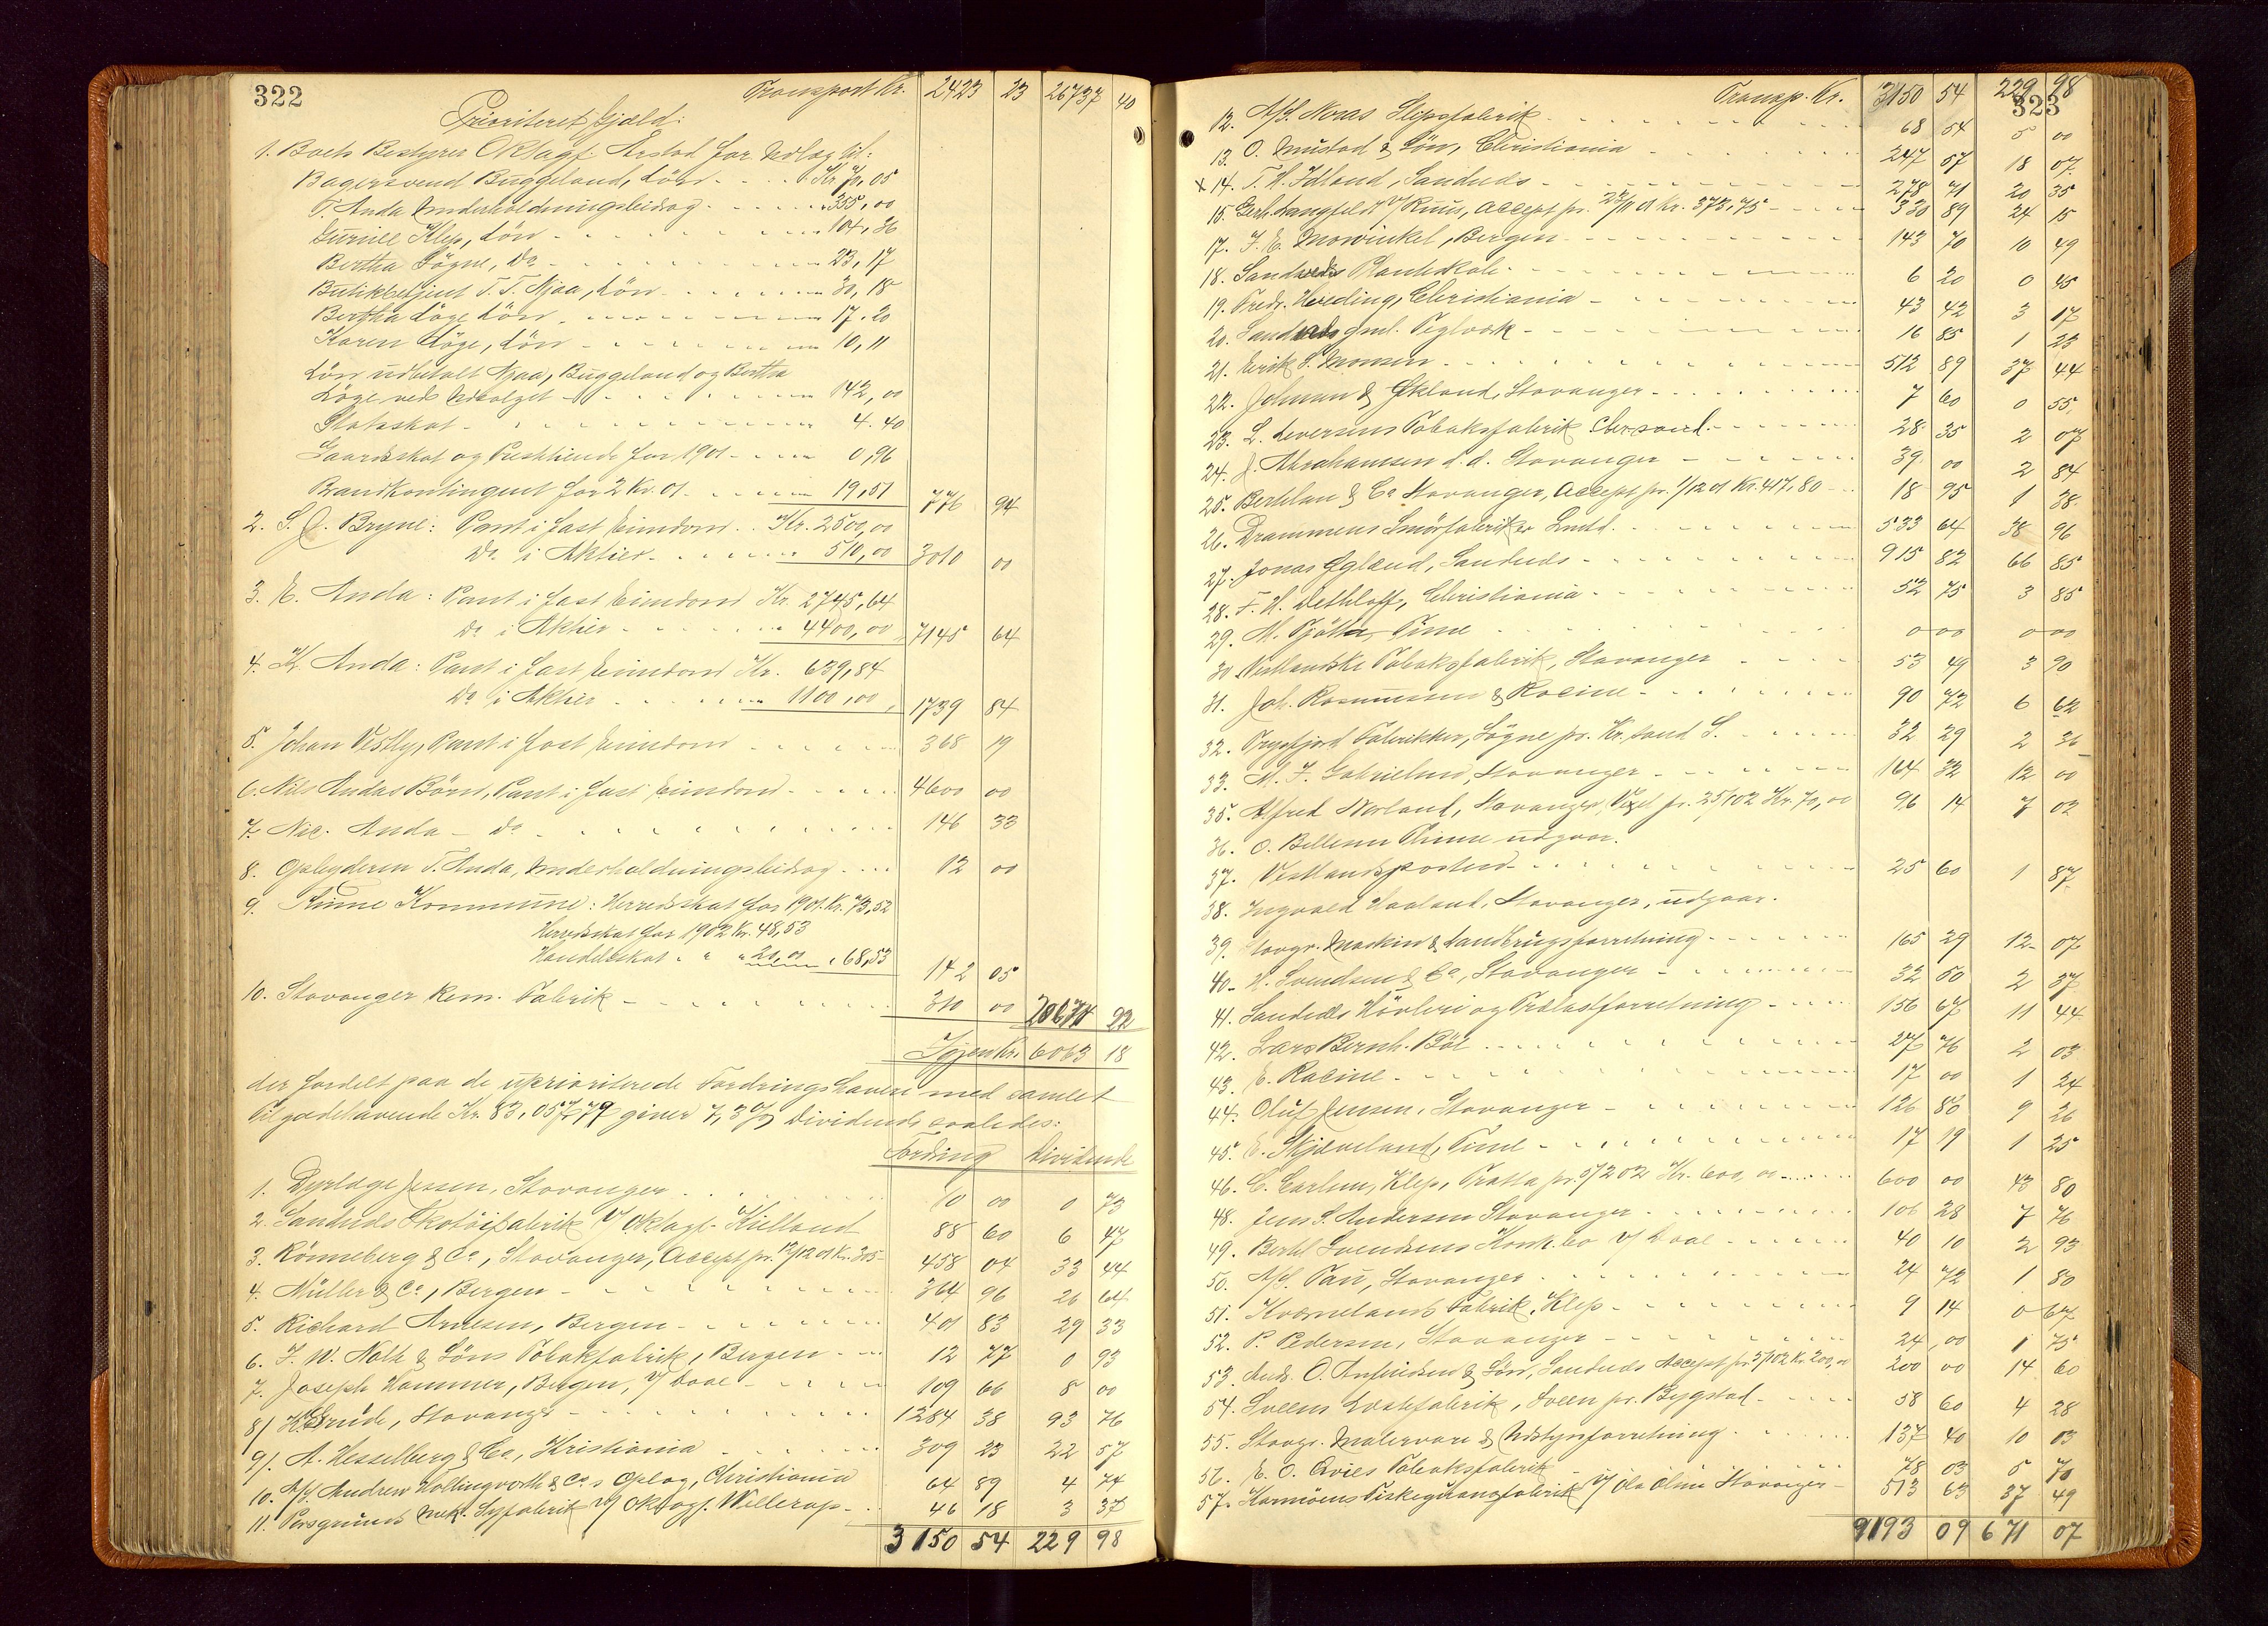 322
Transport Kr. 2423 23 26737 40
Prioriteret Gjæld:
1. Boets Bestyrer O.R.Sagf. Aarstad for Udlæg til:
Bagersvend Buggeland, Lön Kr 70,05
T. Anda Underholdningsbidrag 355,00
Gurine Klep, Lön 104,36
Bertha Søgne, Do 23,17
Butikbetjent T. T. Njaa, Lön 30,18
Bertha Löge Lön 17.20
Karen Löge, Lön 10,11
Lön udbetalt Njaa, Buggeland og Bertha
Löge ved Udsalget 142,00
Statsskat 4.40
Gaardsskat og Presttiende for 1901 0,96
Brandkontingent for 2 Kv. 01 19,51 776 94
2. S. O. Bryne: Pant i fast Eiendom Kr. 2500,00
Do i Aktier 510,00 3010 00
3. E. Anda: Pant i fast Eiendom Kr. 2745,64
Do i Aktier 4400,00 7145 64
4. K. Anda: Pant i fast Eiendom Kr. 639,84
Do i Aktier 1100,00 1739 84
5. Johan Vestly, Pant i fast Eiendom 368 19
6. Nils Andas Börn, Pant i fast Eiendom 4600 00
7. Nic. Anda - Do 146 33
8. Oplagderen T. Anda, Underholdningsbidrag 12 00
9. Thime Kommune: Herredsskat for 1901. Kr. 73,52
Herredsskat for 1902 Kr. 48,53
Handelsskat " " 20,00 " 68,53 142 05
10. Stavanger Kem. Fabrik 310 00 20674 22
Igjen Kr. 6063 18
der fordelt paa de uprioriterede Fordringshavere med samlet
Tilgodehavende Kr. 83,057,79 giver 7,3 % Dividende saaledes:
Fordring Dividende
1. Dyrlæge Jensen, Stavanger 10 00 0 73
2. Sandnes Skotöifabrik v/ O.R.sagf. Kielland 88 60 6 47
3. Rönneberg & Co, Stavanger, Accept pr. 12/12 01 Kr. 305 458 04 33 44
4. Müller & Co, Bergen 364 96 26 64
5. Richard Arnesen, Bergen 401 83 29 33
6. J. W. Nolte & Söns Tobakfabrik, Bergen 12 77 0 93
7. Joseph Hammer, Bergen, v/ Daae 109 66 8 00
8/ K. Grude, Stavanger 1284 38 93 76
9/. A. Hesselberg & Co, Kristiania 309 23 22 57
10. A/S. Andrew Hollingworth & Co.s Oplag, Christiania 64 89 4 74
11. Porsgrunds mek. Syfabrik v/ O.R.sagf. Willerup 46 18 3 37
3150 54 229 98
323
Transp. Kr. 3150 54 229 98
12. A/S. Noras Slipsfabrik 68 54 5 00
13. O. Mustad & Sön, Christiania 247 57 18 07
x 14. T. H. Idland, Sandnes 278 71 20 35
15. Gerh. Langfeldt v/ Ruus, Accept pr. 23/11 01 Kr. 373,75 330 89 24 15
17. J. E. Mowinkel, Bergen 143 70 10 49
18. Sandveds Planteskole 6 20 0 45
19. Fredr. Hereding, Christiania 43 42 3 17
20. Sandveds gml. Teglværk 16 85 1 23
21. Erik S. Monsen 512 89 37 44
22. Johnson & Ökland, Stavanger 7 60 0 55
23. L. Leversens Tobaksfabrik Chr.sand 28 35 2 07
24. J. Abrahamsen d.d. Stavanger 39 00 2 84
25. Berthlau & Co Stavanger, Accept pr. 1/12 01 Kr. 417,80 18 95 1 38
26. Drammens Smörfabriker Lmtd. 533 64 38 96
27. Jonas Ogland, Sandnes 915 82 66 85
28. F. H. Dethloff, Christiania 52 75 3 85
29. M. Tjötta, Time 0 00 0 00
30 Vestlandske Tobaksfabrik, Stavanger 53 49 3 90
31. Joh. Rasmussen & Racine 90 72 6 62
32. Trysfjord Fabrikker, Sögne pr. Kr.sand S. 32 29 2 36
33. M. J. Gabrielsen, Stavanger 164 32 12 00
35. Alfred Norland, Stavanger, Vexel pr. 25/1 02 Kr. 70,00 96 14 7 02
36. O. Bellesen Thime udgaar.
37. Vestlandsposten 25 60 1 87
38. Ingvald Haaland, Stavanger, udgaar.
39. Stavgr. Maskin & Landbrugsforretning 165 29 12 07
40. H. Svendsen & Co, Stavanger 32 50 2 37
41. Sandnes Hövleri og Trælastforretning 156 67 11 44
42. Lars Bernh. Böe 27 76 2 03
43. E. Racine 17 00 1 24
44. Oluf Jensen, Stavanger 126 80 9 26
45. E. Skjæveland, Time 17 19 1 25
46. C. Carlsen, Klep, Tratta pr. 5/2 02 Kr. 600,00 600 00 43 80
48. Jens S. Andersen Stavanger 106 28 7 76
49. Bertel Svendsens Konk.bo v/ Daae 40 10 2 93
50. A/S. Tau, Stavanger 24 72 1 80
51. Kvernelands Fabrik, Klep 9 14 0 67
52. P. Pedersen, Stavanger 24 00 1 75
53. Ands. O. Anfindsen & Sön, Sandnes Accept pr. 5/1 02 Kr. 200,00 200 00 14 60
54. Sveens Læstefabrik, Sveen pr. Bygstad 58 60 4 28
55. Stavgr. Malervare & Udstyrsforretning 137 40 10 03
56. E. O. Qvies Tobaksfabrik 78 03 5 70
57. Karmöens Fiskeguanofabrik v/ Ola Olsen Stavanger 513 63 37 49
9193 09 671 07